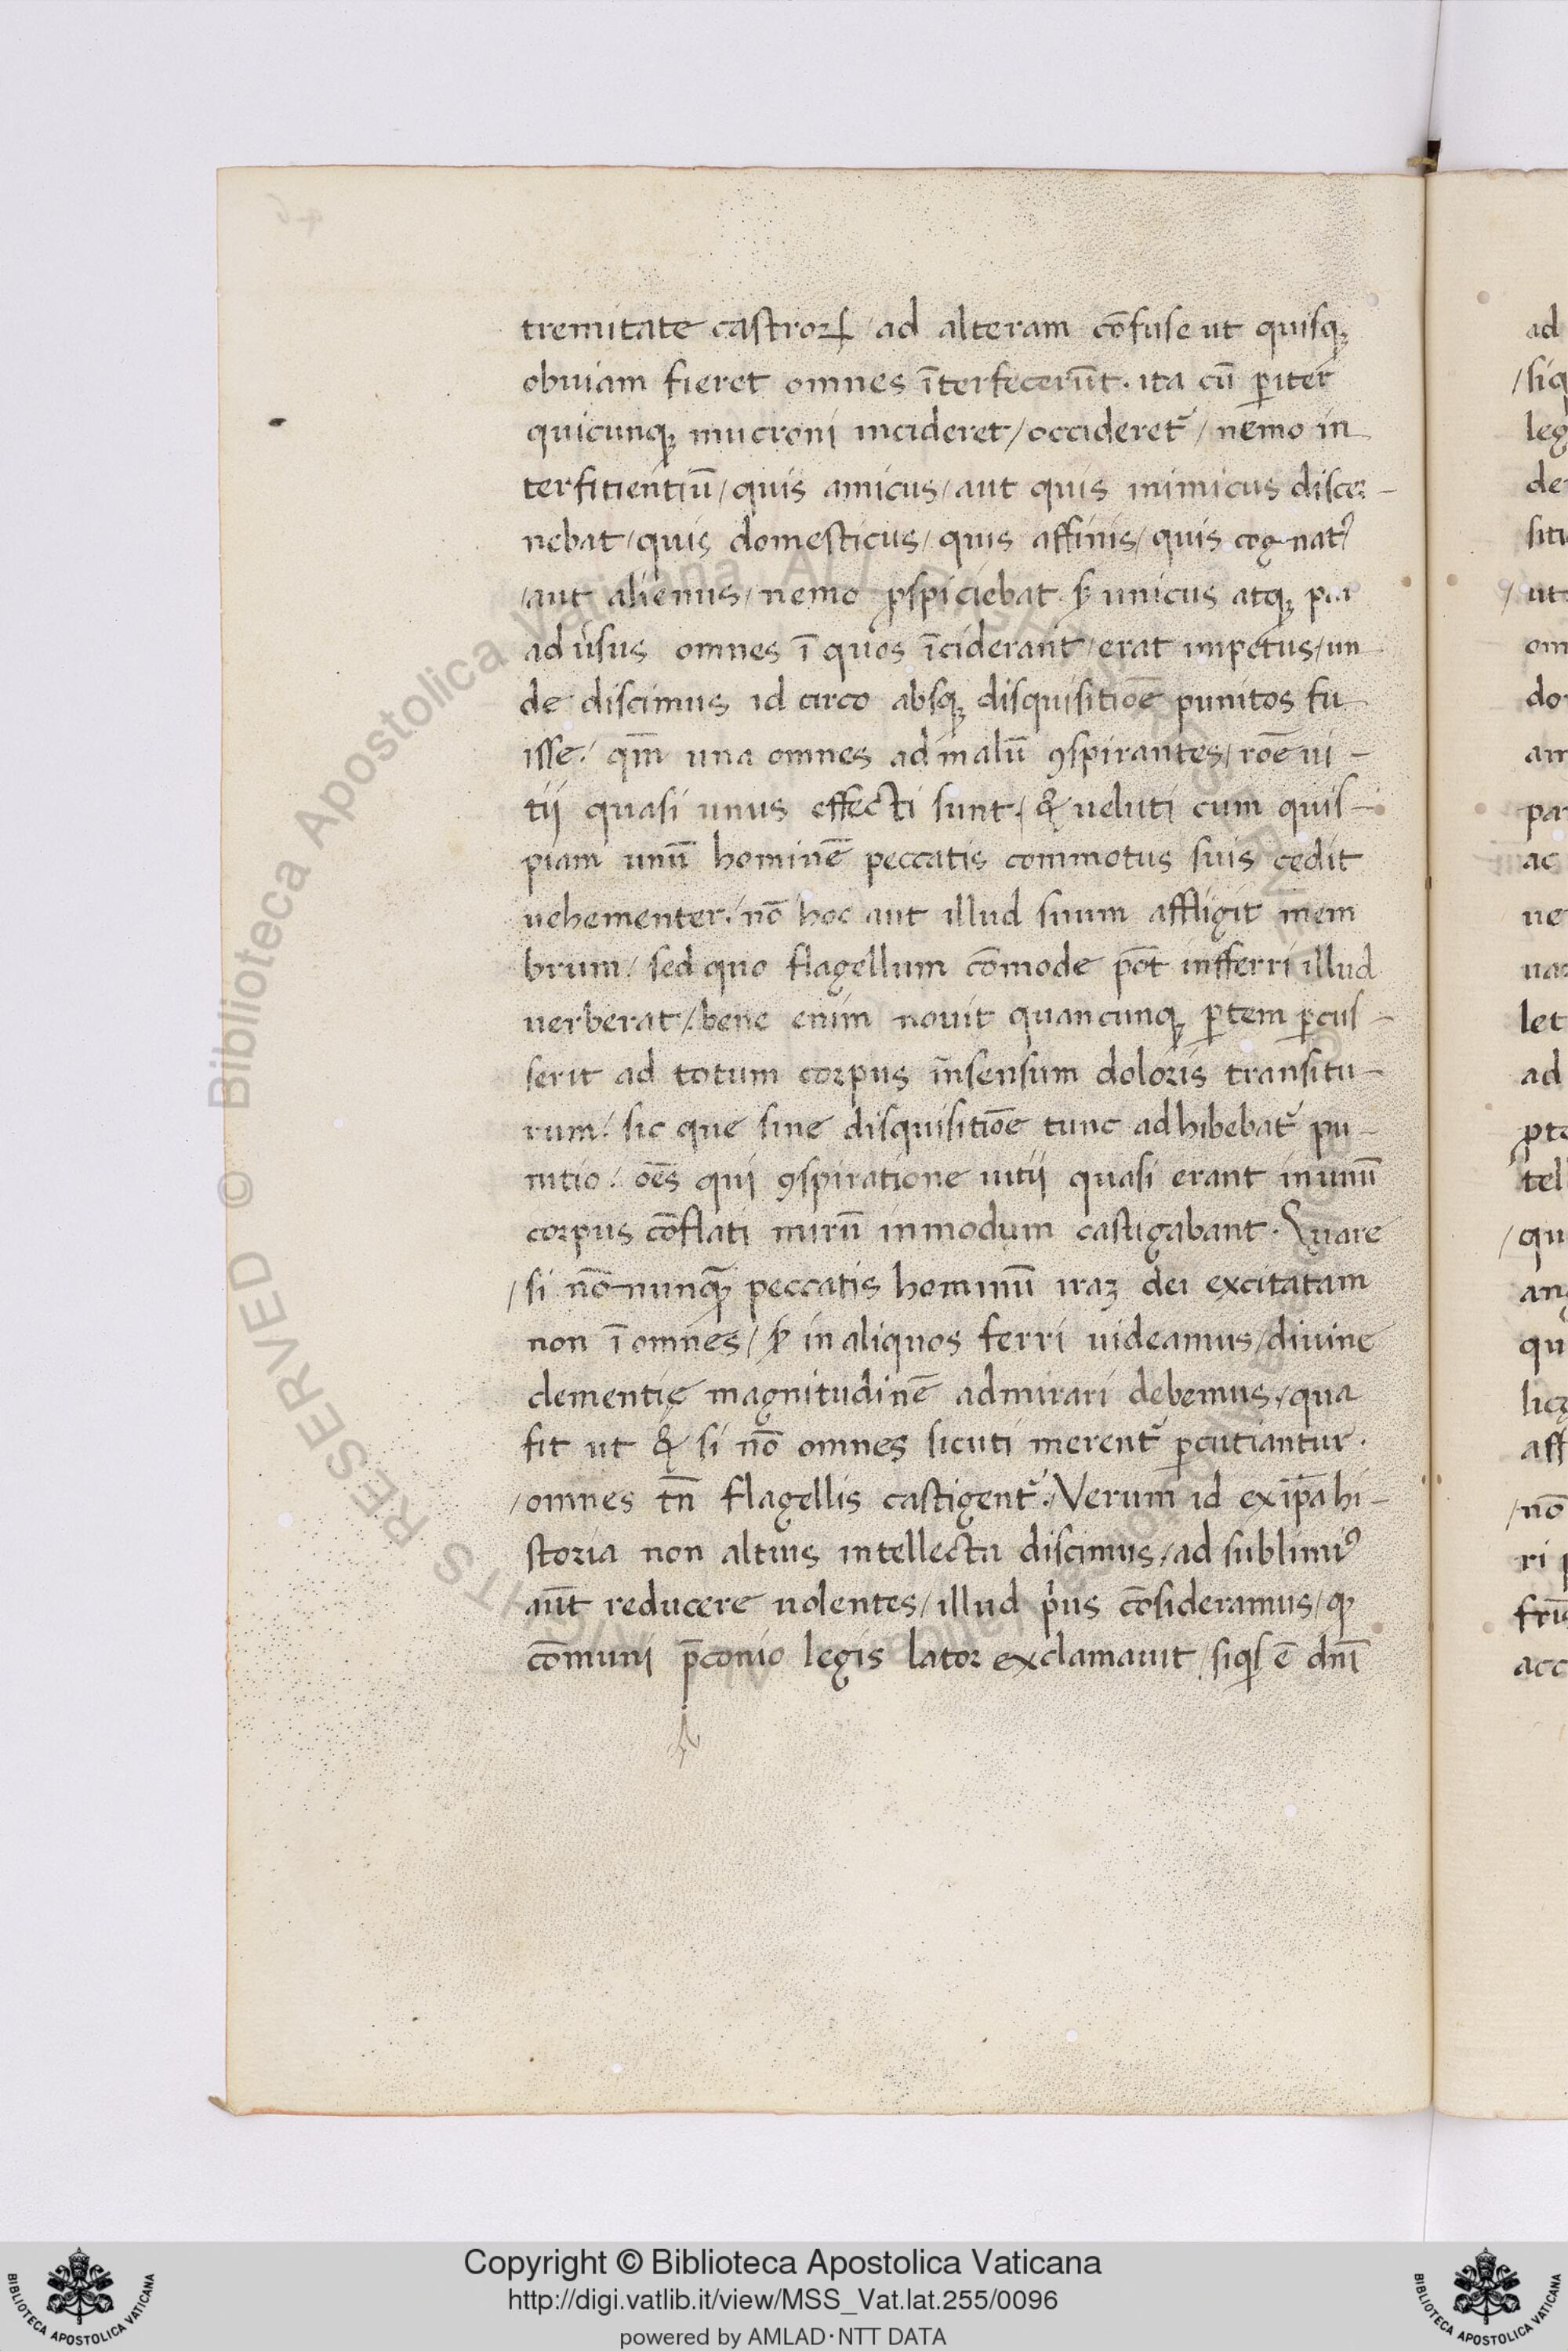 tremitate castroꝝ / ad alteram cōfuse ut quisqꝫ
obuiam fieret omnes īterfecerūt. ita cū ꝑiter
quicunqꝫ mucroni incideret / occideret᷑ / nemo in
terfitientiū / quis amicus / aut quis inimicus discer-
nebat / quis domesticus / quis affinis / quis cognatꝰ
/ aut alienus / nemo ꝓspiciebat. sꝫ unicus atqꝫ par
ad ùsus omnes ī quos īciderant / erat impetus / un
de discimus id circo absqꝫ disquisitiōe punitos fu
isse / qm̄ una omnes ad malū ꝯspirantes / rōe ui-
tij quasi unus effecti sunt. & ueluti cum quis-
piam unū hominē peccatis commotus suis cedit
uehementer / nō hoc aut illud suum affligit mem
brum / sed quo flagellum cōmode pōt infferri illud
uerberat / bene enim nouit quancunqꝫ ꝑtem ꝑcus-
serit ad totum corpus īnsensum doloris transitu-
rum / sic que sine disquisitiōe tunc adhibebat᷑ pu-
nitio / oēs qui ꝯspiratione uitij quasi erant in unū
corpus cōflati mirū in modum castigabant. Quare
/ si nō nunqꝫ peccatis hominū iraꝫ dei excitatam
non ī omnes / sꝫ in aliquos ferri uideamus / diuine
clementię magnitudinē admirari debemus / qua
fit ut & si nō omnes sicuti merent᷑ ꝑcutiantur.
/ omnes tn̄ flagellis castigent᷑. Verum id ex ip̄a hi-
storia non altius intellecta discimus / ad sublimiꝰ
aūt reducere uolentes / illud pͥus cōsideramus / qꝫ
cōmuni p̄conio legis lator exclamauit / siqͥs ē dnī
Copyright © Biblioteca Apostolica Vaticana
http://digi.vatlib.it/view/MSS_Vat.lat.255/0096
powered by AMLAD·NTT DATA
BIBLIOTECA APOSTOLICA VATICANA
BIBLIOTECA APOSTOLICA VATICANA
© Biblioteca Apostolica Vaticana ALL RIGHTS RESERVED
ad
/ siq
leg
de
situ
/ ut
om
do
am
par
ac
ue
uar
let
ad
ꝓte
tel
/ qu
ang
qu
licę
aff
/ nō
ri p
acc